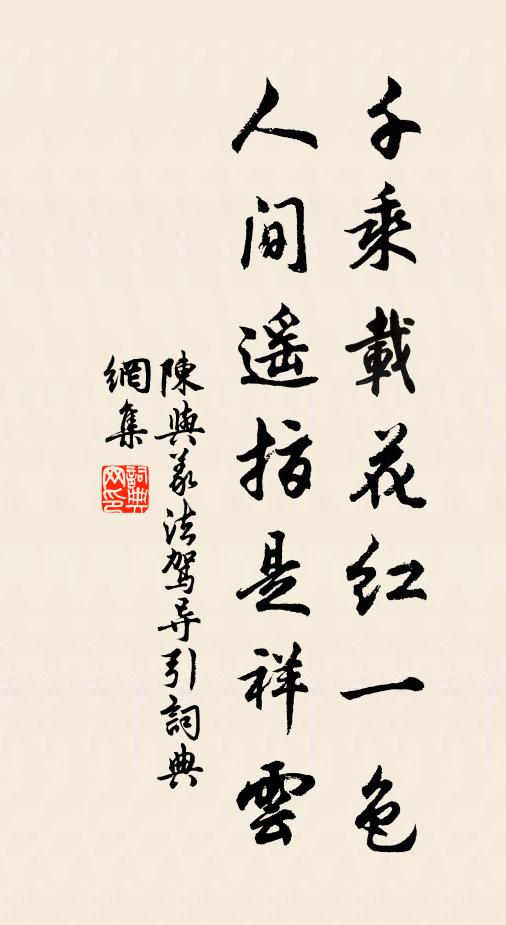 千乘載花紅一色
人間遥指是祥雲
陳與義法駕导引詞典
網集
詞典網印